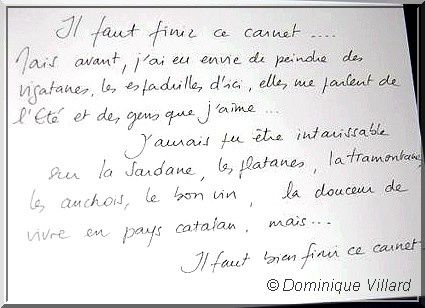 Il faut finir ce carnet ....
Mais avant, j'ai eu envie de peindre des
vigatanes, les espadrilles d'ici, elles me parlent de
l'Eté et des gens que j'aime ...
J'aurais pu être intarissable
sur la Sardane, les platanes, la tramontane,
les anchois, le bon vin, la douceur de
vivre en pays catalan, mais ...
Il faut bien finir ce carnet
© Dominique Villard